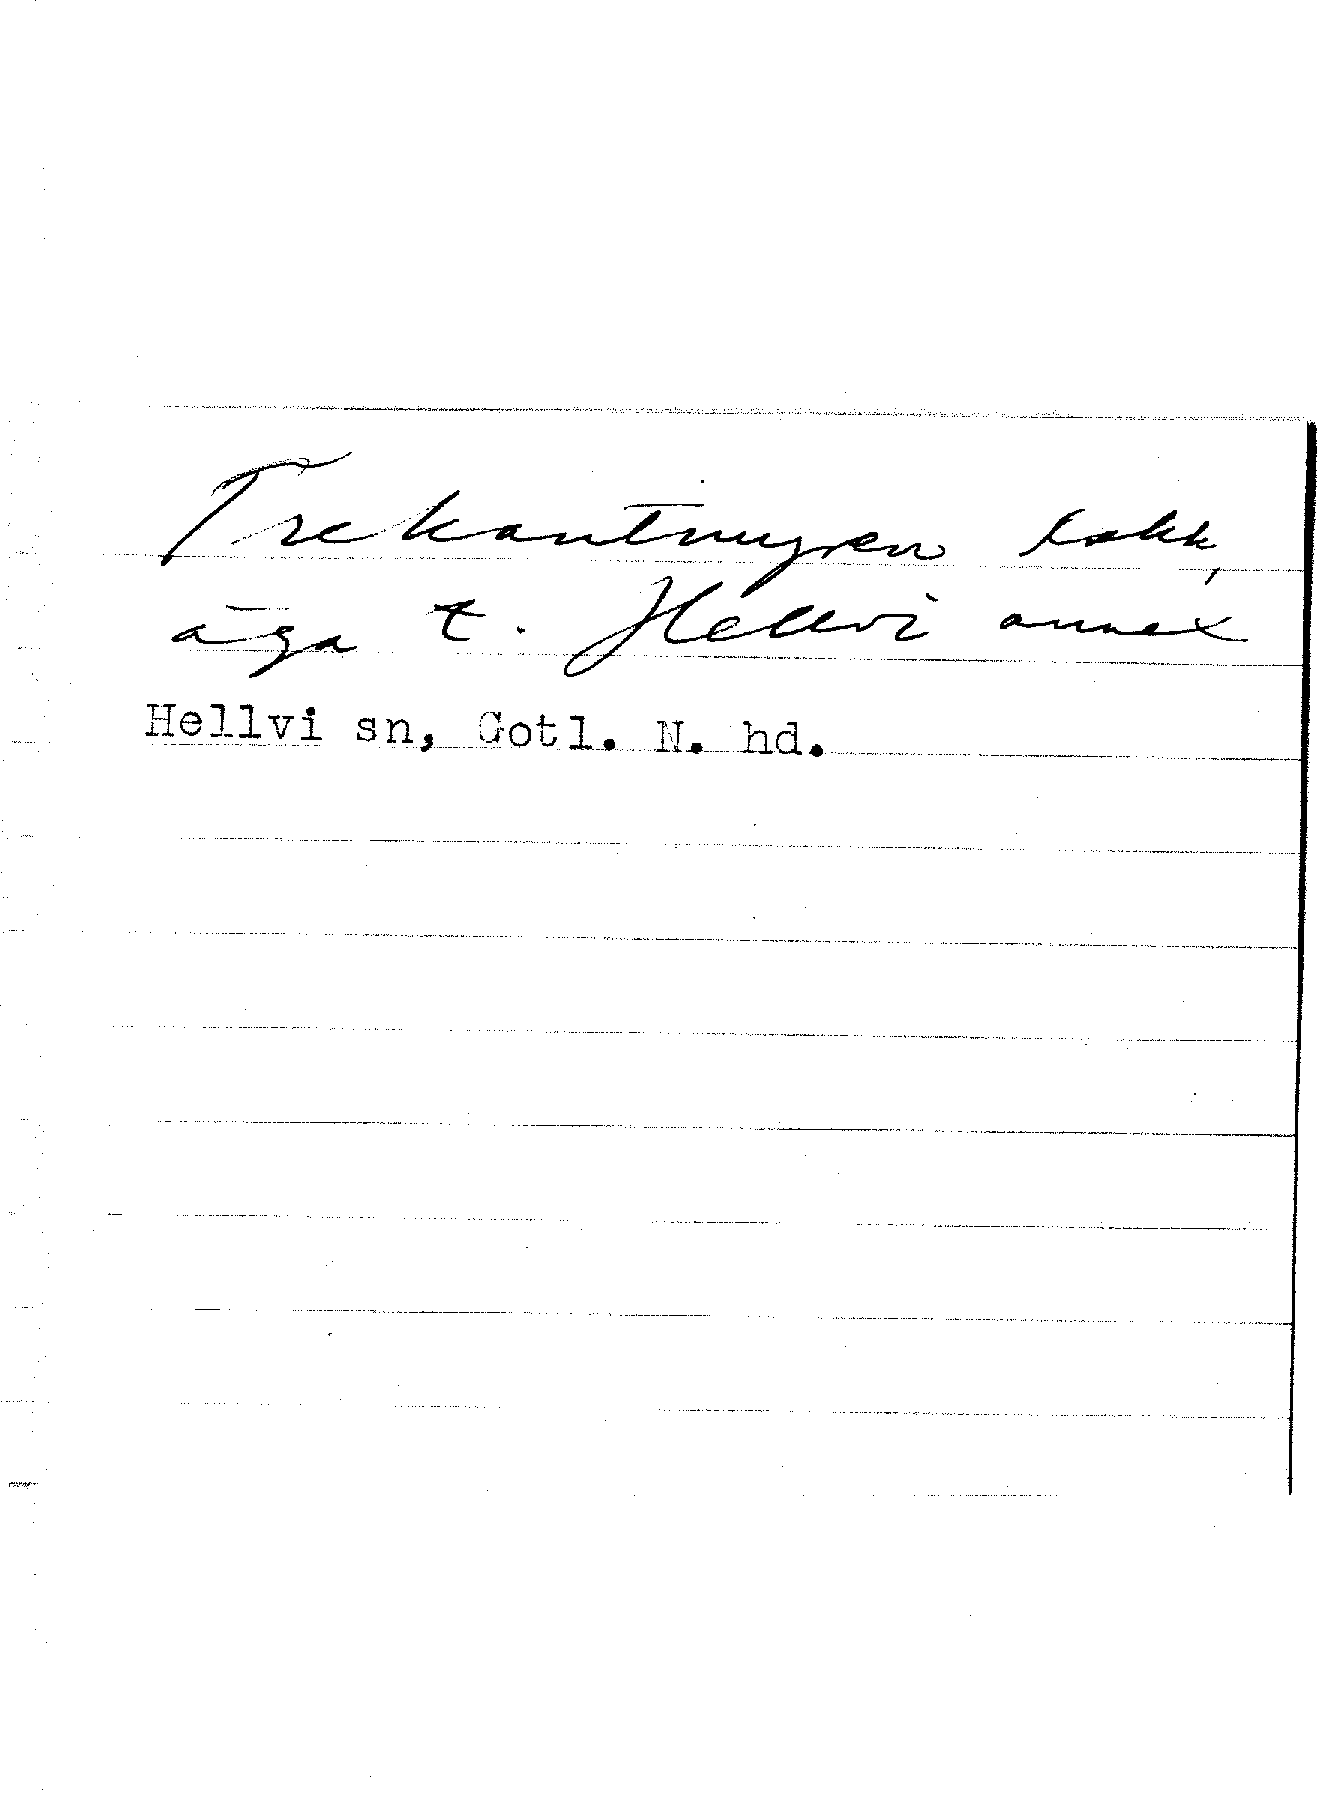 Trekantmyren
äga t. Hellvi annex
Hellvi sn, Gotl. N. hd.